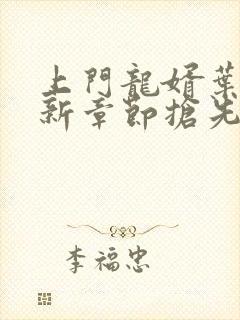 上門龍婿葉
新章節搶先
李福忠